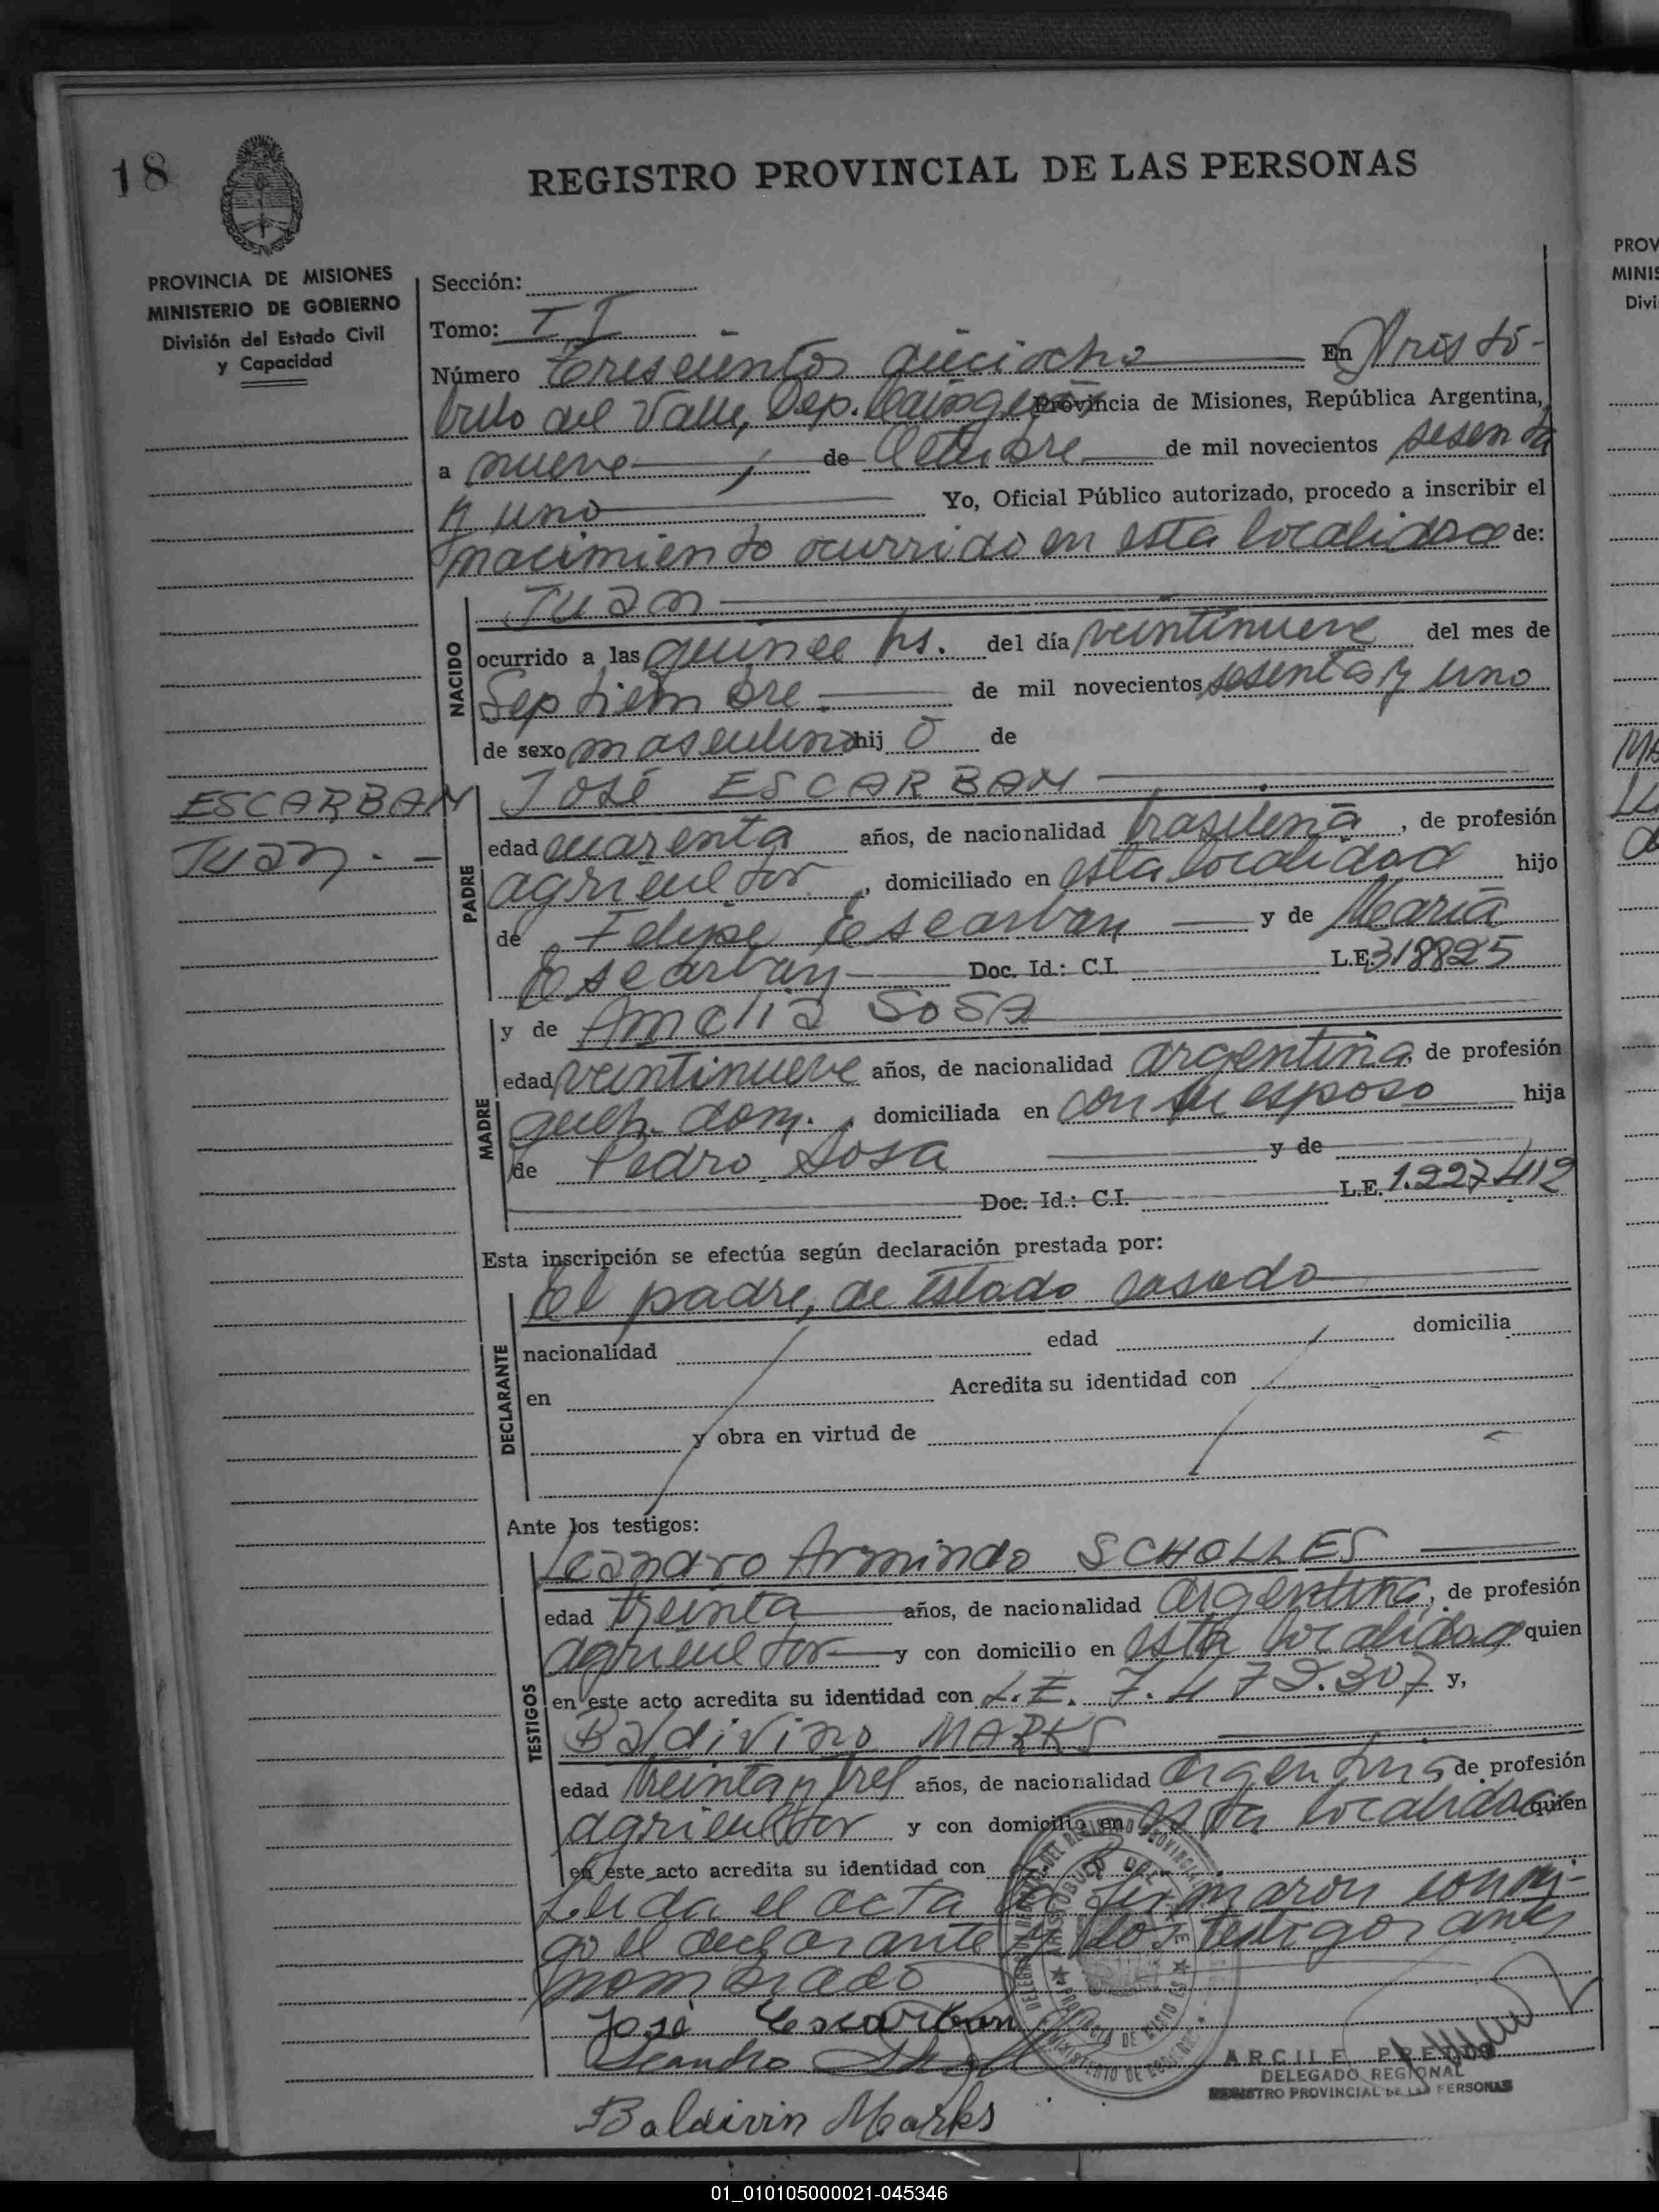 18
REGISTRO PROVINCIAL DE LAS PERSONAS
PROVINCIA DE MISIONES
MINISTERIO DE GOBIERNO
División del Estado Civil
y Capacidad
Sección:
Tomo: II
Número Trescientos dieciocho En Aristó-
bulo del Valle, Dep. Cainguás Provincia de Misiones, República Argentina,
a nueve de Octubre de mil novecientos sesenta
y uno Yo, Oficial Público autorizado, procedo a inscribir el
nacimiento ocurrido en esta localidad de:
NACIDO
Juan
ocurrido a las quince hs. del día veintinueve del mes de
Septiembre. de mil novecientos sesenta y uno
de sexo masculino hij o de
ESCARBAN
Juan. -
PADRE
José ESCARBAN
edad cuarenta años, de nacionalidad brasileña, de profesión
agricultor, domiciliado en esta localidad hijo
de Felipe Escarban y de María
Escarban Doc. Id.: C.I. L.E. 318825
MADRE
y de Amelia SOSA
edad veintinueve años, de nacionalidad argentina, de profesión
queh. dom., domiciliada en con su esposo hija
de Pedro Sosa y de
Doc. Id.: C.I. L.E. 1.227412
Esta inscripción se efectúa según declaración prestada por:
DECLARANTE
El padre, de estado casado
nacionalidad edad domicilia
en Acredita su identidad con
y obra en virtud de
Ante los testigos:
TESTIGOS
Leandro Armindo SCHOLLES
edad treinta años, de nacionalidad argentina, de profesión
agricultor y con domicilio en esta localidad quien
en este acto acredita su identidad con L.E. 7.479.307 y,
Baldivino MARKS
edad treinta y tres años, de nacionalidad argentina, de profesión
agricultor y con domicilio en esta localidad quien
en este acto acredita su identidad con
Leida el acta la firmaron conmi-
go el declarante y los testigos antes
nombrado
José Escarban
Leandro
Baldivin Marks
ARCILE
DELEGADO REGIONAL
REGISTRO PROVINCIAL DE LAS PERSONAS
PROV
MINIS
Divi
01_010105000021-045346